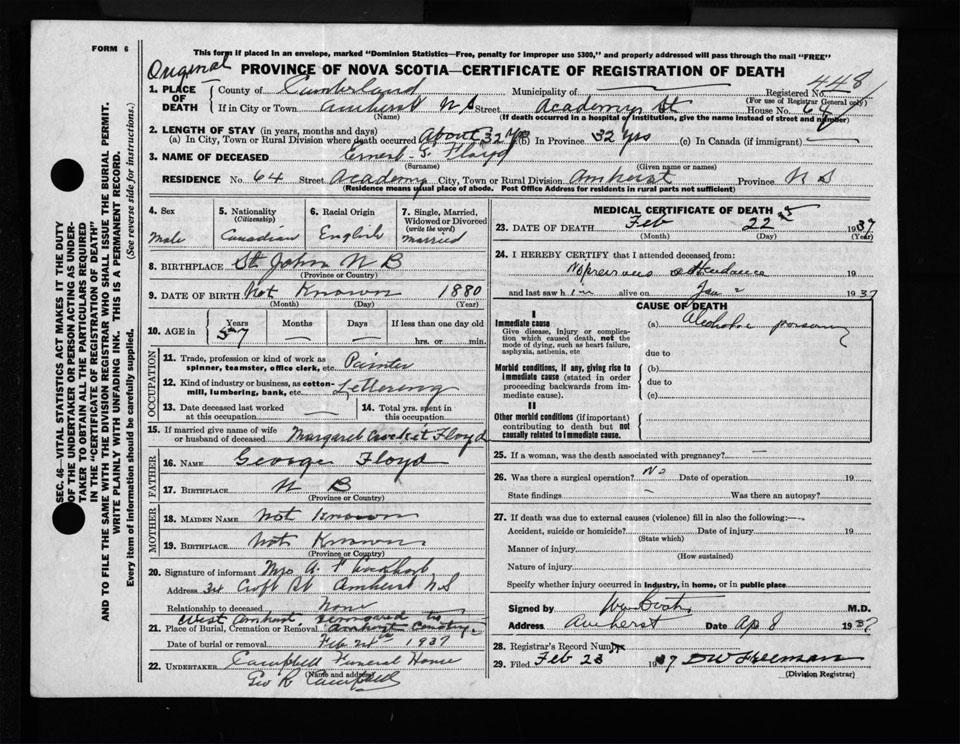 FORM 6
This form if placed in an envelope, marked "Dominion Statistics—Free, penalty for improper use $300," and properly addressed will pass through the mail "FREE"
Original
PROVINCE OF NOVA SCOTIA—CERTIFICATE OF REGISTRATION OF DEATH
448
1. PLACE OF DEATH { County of Cumberland Municipality of — Registered No.
(For use of Registrar General only)
If in City or Town Amherst N S Street Academy St House No. 64
(Name) (If death occurred in a hospital or institution, give the name instead of street and number)
2. LENGTH OF STAY (in years, months and days)
(a) In City, Town or Rural Division where death occurred About 32 Yrs (b) In Province 32 yrs (c) In Canada (if immigrant) —
3. NAME OF DECEASED Ernest S. Floyd
(Surname) (Given name or names)
RESIDENCE No. 64 Street Academy City, Town or Rural Division Amherst Province N S
(Residence means usual place of abode. Post Office Address for residents in rural parts not sufficient)
4. Sex
Male
5. Nationality (Citizenship)
Canadian
6. Racial Origin
English
7. Single, Married, Widowed or Divorced (write the word)
Married
8. BIRTHPLACE St John N B
(Province or Country)
9. DATE OF BIRTH Not Known 1880
(Month) (Day) (Year)
10. AGE in { Years Months Days If less than one day old
57 — — hrs. or min.
OCCUPATION
11. Trade, profession or kind of work as spinner, teamster, office clerk, etc. Painter
12. Kind of industry or business, as cotton-mill, lumbering, bank, etc. Lettering
13. Date deceased last worked at this occupation —
14. Total yrs. spent in this occupation —
15. If married give name of wife or husband of deceased Margaret Crocket Floyd
FATHER
16. NAME George Floyd
17. BIRTHPLACE N B
(Province or Country)
MOTHER
18. MAIDEN NAME Not Known
19. BIRTHPLACE Not Known
(Province or Country)
20. Signature of informant Mrs A. F Lockhart
Address 34 Croft St Amherst N.S
Relationship to deceased None
West Amherst, removed to
21. Place of Burial, Cremation or Removal Amherst Cemetery
Date of burial or removal Feb 24th 1937
22. UNDERTAKER Campbell Funeral Home
(Name and address)
Geo R Campbell
MEDICAL CERTIFICATE OF DEATH
23. DATE OF DEATH Feb 22 1937
(Month) (Day) (Year)
24. I HEREBY CERTIFY that I attended deceased from:
No previous attendance 19
and last saw him alive on Jan 2 1937
CAUSE OF DEATH
I
Immediate cause
Give disease, injury or complication which caused death, not the mode of dying, such as heart failure, asphyxia, asthenia, etc
(a) Alcoholic poisoning
due to
Morbid conditions, if any, giving rise to immediate cause (stated in order proceeding backwards from immediate cause).
(b)
due to
(c)
II
Other morbid conditions (if important) contributing to death but not causally related to immediate cause.
25. If a woman, was the death associated with pregnancy? —
26. Was there a surgical operation? No Date of operation 19
State findings — Was there an autopsy?
27. If death was due to external causes (violence) fill in also the following:—
Accident, suicide or homicide? Date of injury 19
(State which)
Manner of injury
(How sustained)
Nature of injury
Specify whether injury occurred in industry, in home, or in public place
Signed by M.D.
Address Amherst Date Ap 8 1937
28. Registrar's Record Number
29. Filed Feb 23 1937 D W Freeman
(Division Registrar)
SEC. 46—VITAL STATISTICS ACT MAKES IT THE DUTY
OF THE UNDERTAKER OR PERSON ACTING AS UNDER-
TAKER TO OBTAIN ALL THE PARTICULARS REQUIRED
IN THE "CERTIFICATE OF REGISTRATION OF DEATH"
AND TO FILE THE SAME WITH THE DIVISION REGISTRAR WHO SHALL ISSUE THE BURIAL PERMIT.
WRITE PLAINLY WITH UNFADING INK. THIS IS A PERMANENT RECORD.
Every item of information should be carefully supplied. (See reverse side for instructions.)